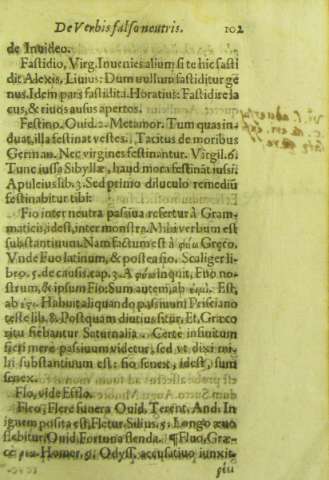 De Verbis falso neutris. 102
de Invideo.
Fastidio, Virg. Invenies alium si te hic fasti
dit Alexis, Livius: Dum nullum fastiditur ge
nus. Idem pars fastidita. Horatius: Fastidire la
cus, & rivos ausus apertos.
Festino. Ouid. 2. Metamor. Tum quas in-
duat, illa festinat vestes. Tacitus de moribus
German. Nec virgines festinantur. Virgil. 6.
Tunc iussa Sibyllæ, haud mora festinãt iussi.
Apuleius lib. 3. Sed primo diluculo remediũ
festinabitur tibi.
Fio inter neutra passiva refertur à Gram-
maticis, idest, inter monstra. Mihi verbum est
substantivum. Nam factum est à φύω Græco.
Vnde Fuo latinum, & postea fio. Scaliger li-
bro. 5. de causis. cap. 3. A φύω inquit, Fuo no-
strum, & ipsum Fio: Sum autem, ab Est,
ab Habuit aliquando passivum Prisciano
teste lib. 8. Postquam diutius fitur, Et, Græco
ritu fiebantur Saturnalia. Certe infinitum
fieri mere passivum videtur, sed vt dixi mi-
hi substantivum est: fio senex, idest, sum
senex.
Flo, vide Efflo.
Fleo, Flere funera Ouid. Terent. And. In
ignem posita est, Fletur. Silius. 5. Longo ævo
flebitur, Ouid. Fortuna flenda. ¶ Fluo, Græ-
cè Homer. 9. Odyss. accusativo iunxit